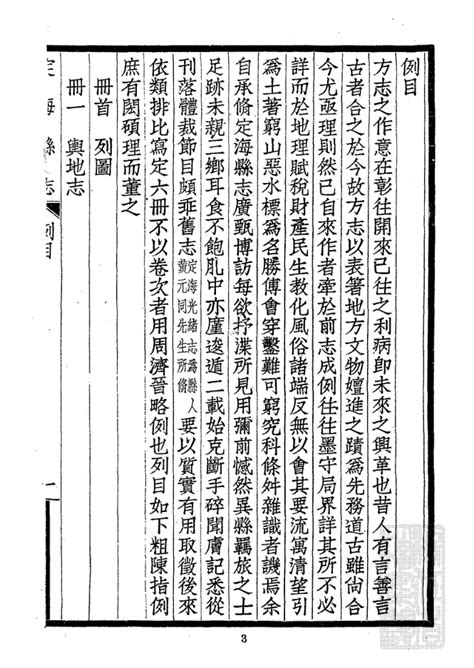 例目
方志之作意在彰往開來已往之利病卽未來之興革也昔人有言善言
古者合之於今故方志以表箸地方文物嬗進之蹟爲先務道古雖尙合
今尤亟理則然已自來作者牽於前志成例往往墨守局界詳其所不必
詳而於地理賦稅財產民生敎化風俗諸端反無以會其要流寓淸望引
爲土著窮山惡水標爲名勝傅會穿鑿難可窮究科條舛雜識者譏焉余
自承修定海縣志廣甄博訪每欲抒渫所見用彌前憾然異縣羈旅之士
足跡未親三鄉耳食不飽肌中亦廑逡遁二載始克斷手碎聞膚記悉從
刊落體裁節目頗乖舊志定海光緒志爲縣人黃元同先生所脩要以質實有用取徵後來
依類排比寫定六冊不以卷次者用周濟晉略例也列目如下粗陳指例
庶有閎碩理而董之
冊首 列圖
冊一 輿地志
定海縣志
例目
一
3